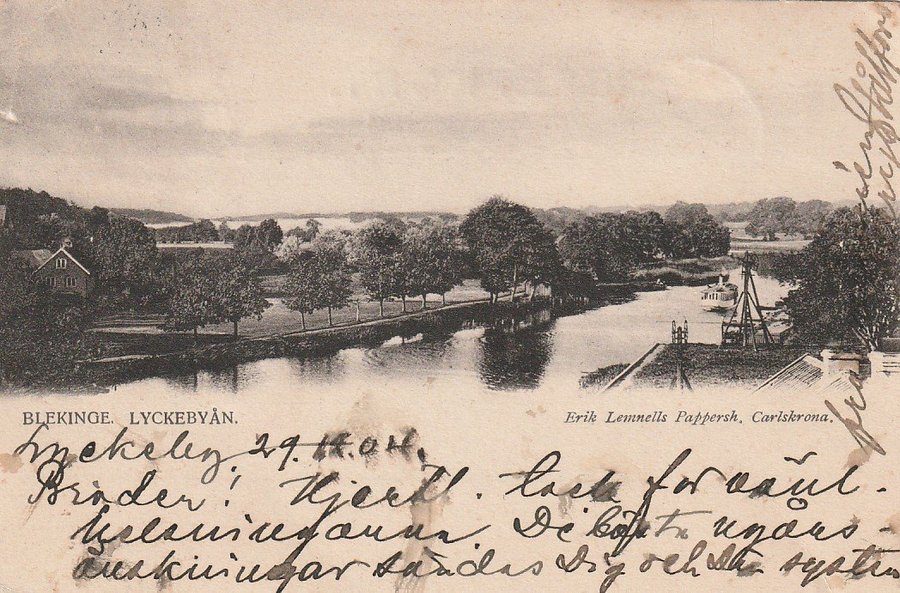 BLEKINGE. LYCKEBYÅN.
Erik Lemnells Pappersh., Carlskrona.
Lyckeby, 29.12.04.
Broder! Hjertl. tack för vänl-
helsningarna De bästa nyårs-
önskningar sändas Dig och Din syster
från